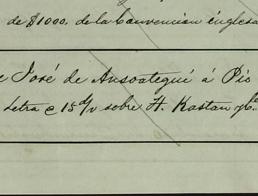 de $1000. de la Convencion inglesa
José de Ansoategui á Pio
letra @ 15 d/v sobre H. Kastan y Ca.